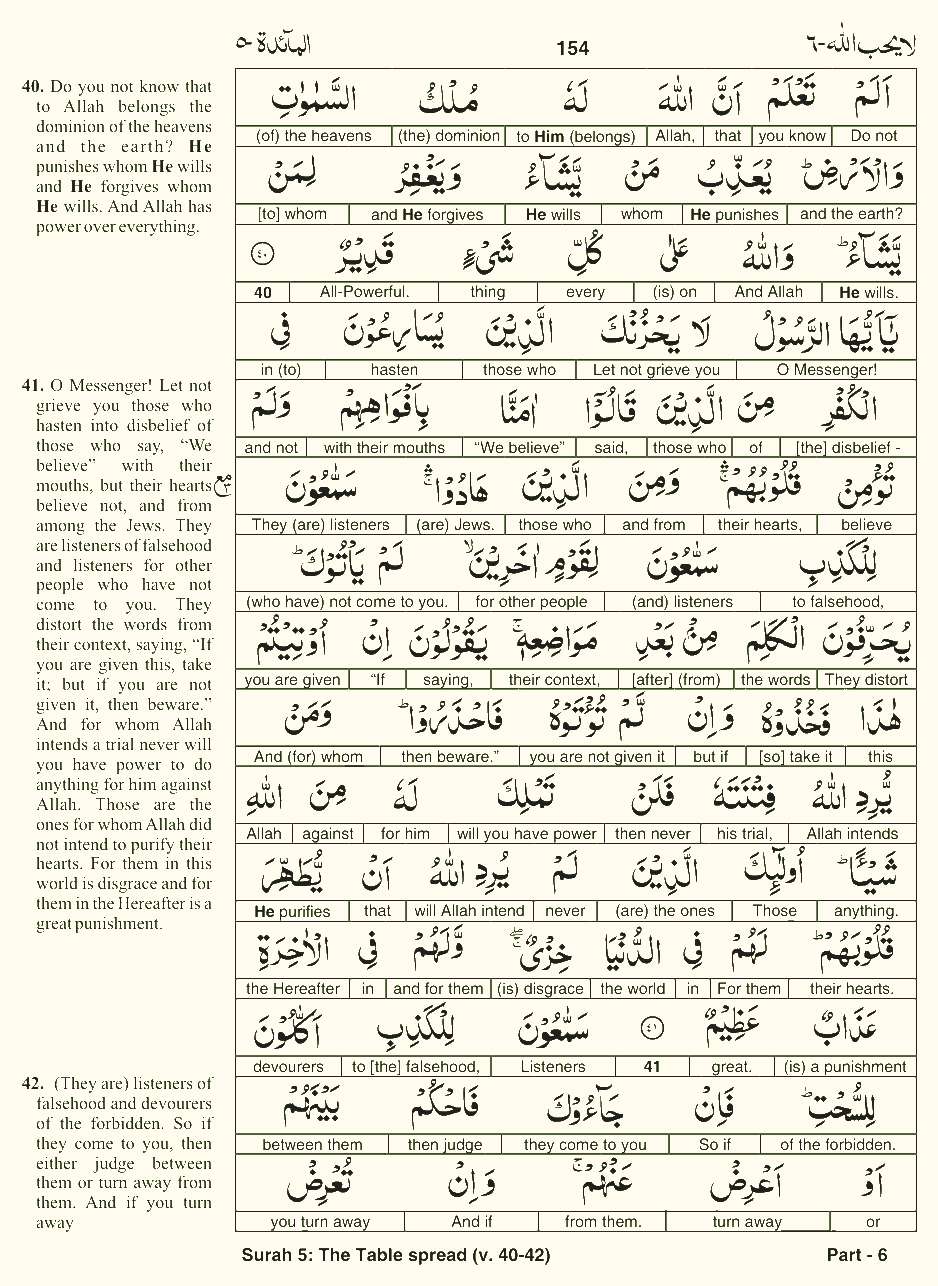 المآئدة-٥ 154 لا يحب الله-٦
40. Do you not know that
to Allah belongs the
dominion of the heavens
and the earth? He
punishes whom He wills
and He forgives whom
He wills. And Allah has
power over everything.
41. O Messenger! Let not
grieve you those who
hasten into disbelief of
those who say, “We
believe” with their
mouths, but their hearts
believe not, and from
among the Jews. They
are listeners of falsehood
and listeners for other
people who have not
come to you. They
distort the words from
their context, saying, “If
you are given this, take
it; but if you are not
given it, then beware.”
And for whom Allah
intends a trial never will
you have power to do
anything for him against
Allah. Those are the
ones for whom Allah did
not intend to purify their
hearts. For them in this
world is disgrace and for
them in the Hereafter is a
great punishment.
42. (They are) listeners of
falsehood and devourers
of the forbidden. So if
they come to you, then
either judge between
them or turn away from
them. And if you turn
away
اَلَمْ تَعْلَمْ اَنَّ اللّٰهَ لَهٗ مُلْكُ السَّمٰوٰتِ
Do not | you know | that | Allah, | to Him (belongs) | (the) dominion | (of) the heavens
وَالْاَرْضِ ؕ يُعَذِّبُ مَنْ يَّشَآءُ وَيَغْفِرُ لِمَنْ
and the earth? | He punishes | whom | He wills | and He forgives | [to] whom
يَّشَآءُ ؕ وَاللّٰهُ عَلٰى كُلِّ شَىْءٍ قَدِيْرٌ ٤٠
He wills. | And Allah | (is) on | every | thing | All-Powerful. | 40
يٰۤاَيُّهَا الرَّسُوْلُ لَا يَحْزُنْكَ الَّذِيْنَ يُسَارِعُوْنَ فِى
O Messenger! | Let not grieve you | those who | hasten | in (to)
الْكُفْرِ مِنَ الَّذِيْنَ قَالُوْۤا اٰمَنَّا بِاَفْوَاهِهِمْ وَلَمْ
[the] disbelief - | of | those who | said, | “We believe” | with their mouths | and not
تُؤْمِنْ قُلُوْبُهُمْ ۛۚ وَمِنَ الَّذِيْنَ هَادُوْا ۛۚ سَمّٰعُوْنَ مع ٣
believe | their hearts, | and from | those who | (are) Jews. | They (are) listeners
لِلْكَذِبِ سَمّٰعُوْنَ لِقَوْمٍ اٰخَرِيْنَ ۙ لَمْ يَاْتُوْكَ ؕ
to falsehood, | (and) listeners | for other people | (who have) not come to you.
يُحَرِّفُوْنَ الْكَلِمَ مِنْۢ بَعْدِ مَوَاضِعِهٖ ۚ يَقُوْلُوْنَ اِنْ اُوْتِيْتُمْ
They distort | the words | [after] (from) | their context, | saying, | “If | you are given
هٰذَا فَخُذُوْهُ وَاِنْ لَّمْ تُؤْتَوْهُ فَاحْذَرُوْا ؕ وَمَنْ
this | [so] take it | but if | you are not given it | then beware.” | And (for) whom
يُّرِدِ اللّٰهُ فِتْنَتَهٗ فَلَنْ تَمْلِكَ لَهٗ مِنَ اللّٰهِ
Allah intends | his trial, | then never | will you have power | for him | against | Allah
شَيْـًٔا ؕ اُولٰٓئِكَ الَّذِيْنَ لَمْ يُرِدِ اللّٰهُ اَنْ يُّطَهِّرَ
anything. | Those | (are) the ones | never | will Allah intend | that | He purifies
قُلُوْبَهُمْ ؕ لَهُمْ فِى الدُّنْيَا خِزْىٌ ۖۚ وَّلَهُمْ فِى الْاٰخِرَةِ
their hearts. | For them | in | the world | (is) disgrace | and for them | in | the Hereafter
عَذَابٌ عَظِيْمٌ ٤١ سَمّٰعُوْنَ لِلْكَذِبِ اَكّٰلُوْنَ
(is) a punishment | great. | 41 | Listeners | to [the] falsehood, | devourers
لِلسُّحْتِ ؕ فَاِنْ جَآءُوْكَ فَاحْكُمْ بَيْنَهُمْ
of the forbidden. | So if | they come to you | then judge | between them
اَوْ اَعْرِضْ عَنْهُمْ ۚ وَاِنْ تُعْرِضْ
or | turn away | from them. | And if | you turn away
Surah 5: The Table spread (v. 40-42) Part - 6